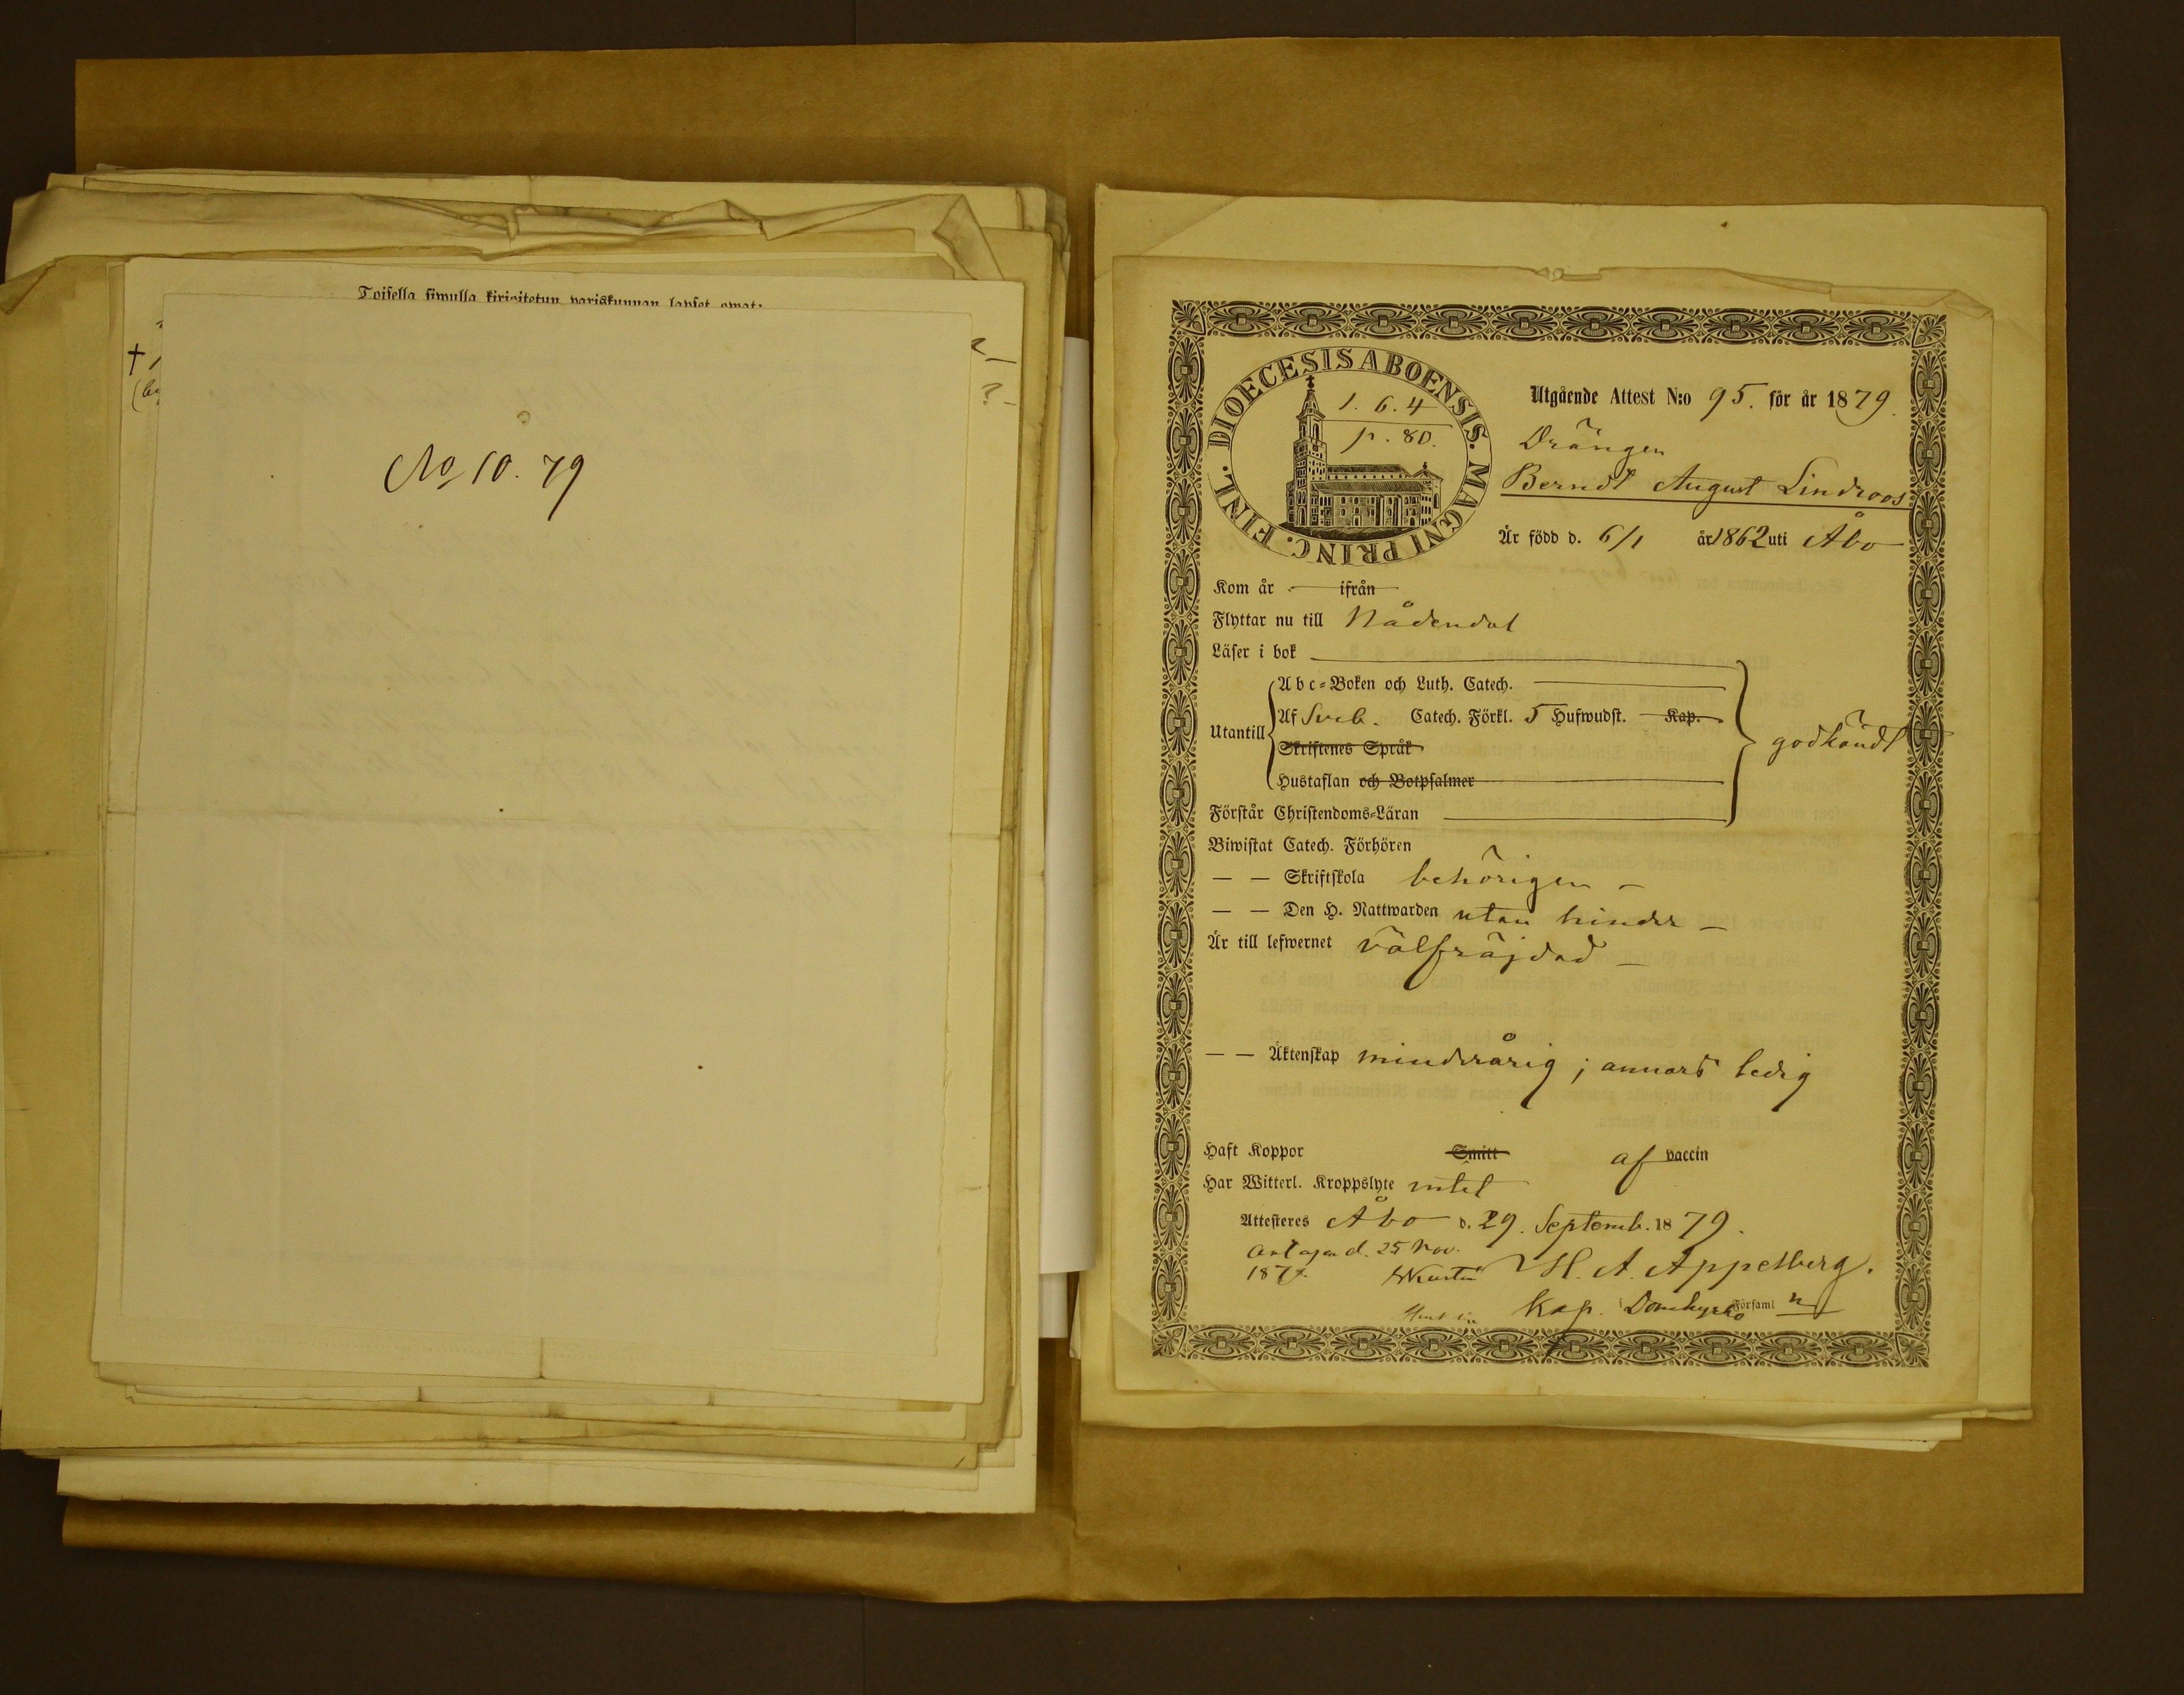 Toisella siwulla kirjoitetun pariskunnan lapset owat:
†
No 10. 79
DIOECESIS ABOENSIS. MAGNI PRINC. FINL.
1. 6. 4
p. 80.
Utgående Attest N:o 95. för år 1879.
Drängen
Berndt August Lindroos
Är född d. 6/1 år 1862 uti Åbo
Kom år — ifrån
Flyttar nu till Nådendal
Läser i bok
Utantill
Abc-Boken och Luth. Catech.
Af Sveb. Catech. Förkl. 5 Hufwudst. Kap.
Skriftenes Språk
Hustaflan och Botpsalmer
godkändt
Förstår Christendoms-Läran
Biwistat Catech. Förhören
— — Skriftskola behörigen —
— — Den H. Nattwarden utan hinder —
Är till lefwernet välfräjdad —
— — Äktenskap minderårig; annars ledig
Haft Koppor Smitt af vaccin
Har Witterl. Kroppslyte intet
Attesteres Åbo d. 29. Septemb. 1879.
Antagen d. 25 Nov.
H. A. Appelberg.
Kap. Domkyrko Församl n